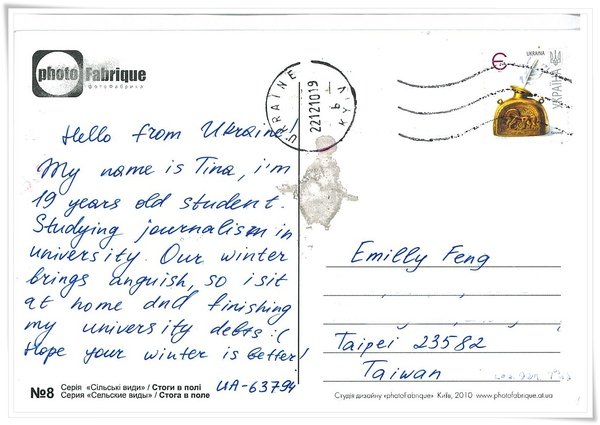 photo Fabrique
фотоФабрика
UKRAINE
22121019
6
KYIV
є
UKRAINA
УКРАЇНА
Hello from Ukraine!
My name is Tina, i'm
19 years old student.
Studying journalism in
university. Our winter
brings anguish, so i sit
at home and finishing
my university debts :(
Hope your winter is better!
UA-63794
Emilly Feng
Taipei 23582
Taiwan
№8
Серія «Сільські види» / Стоги в полі
Серия «Сельские виды» / Стога в поле
Студія дизайну «photoFабrique» Київ, 2010 www.photofabrique.at.ua